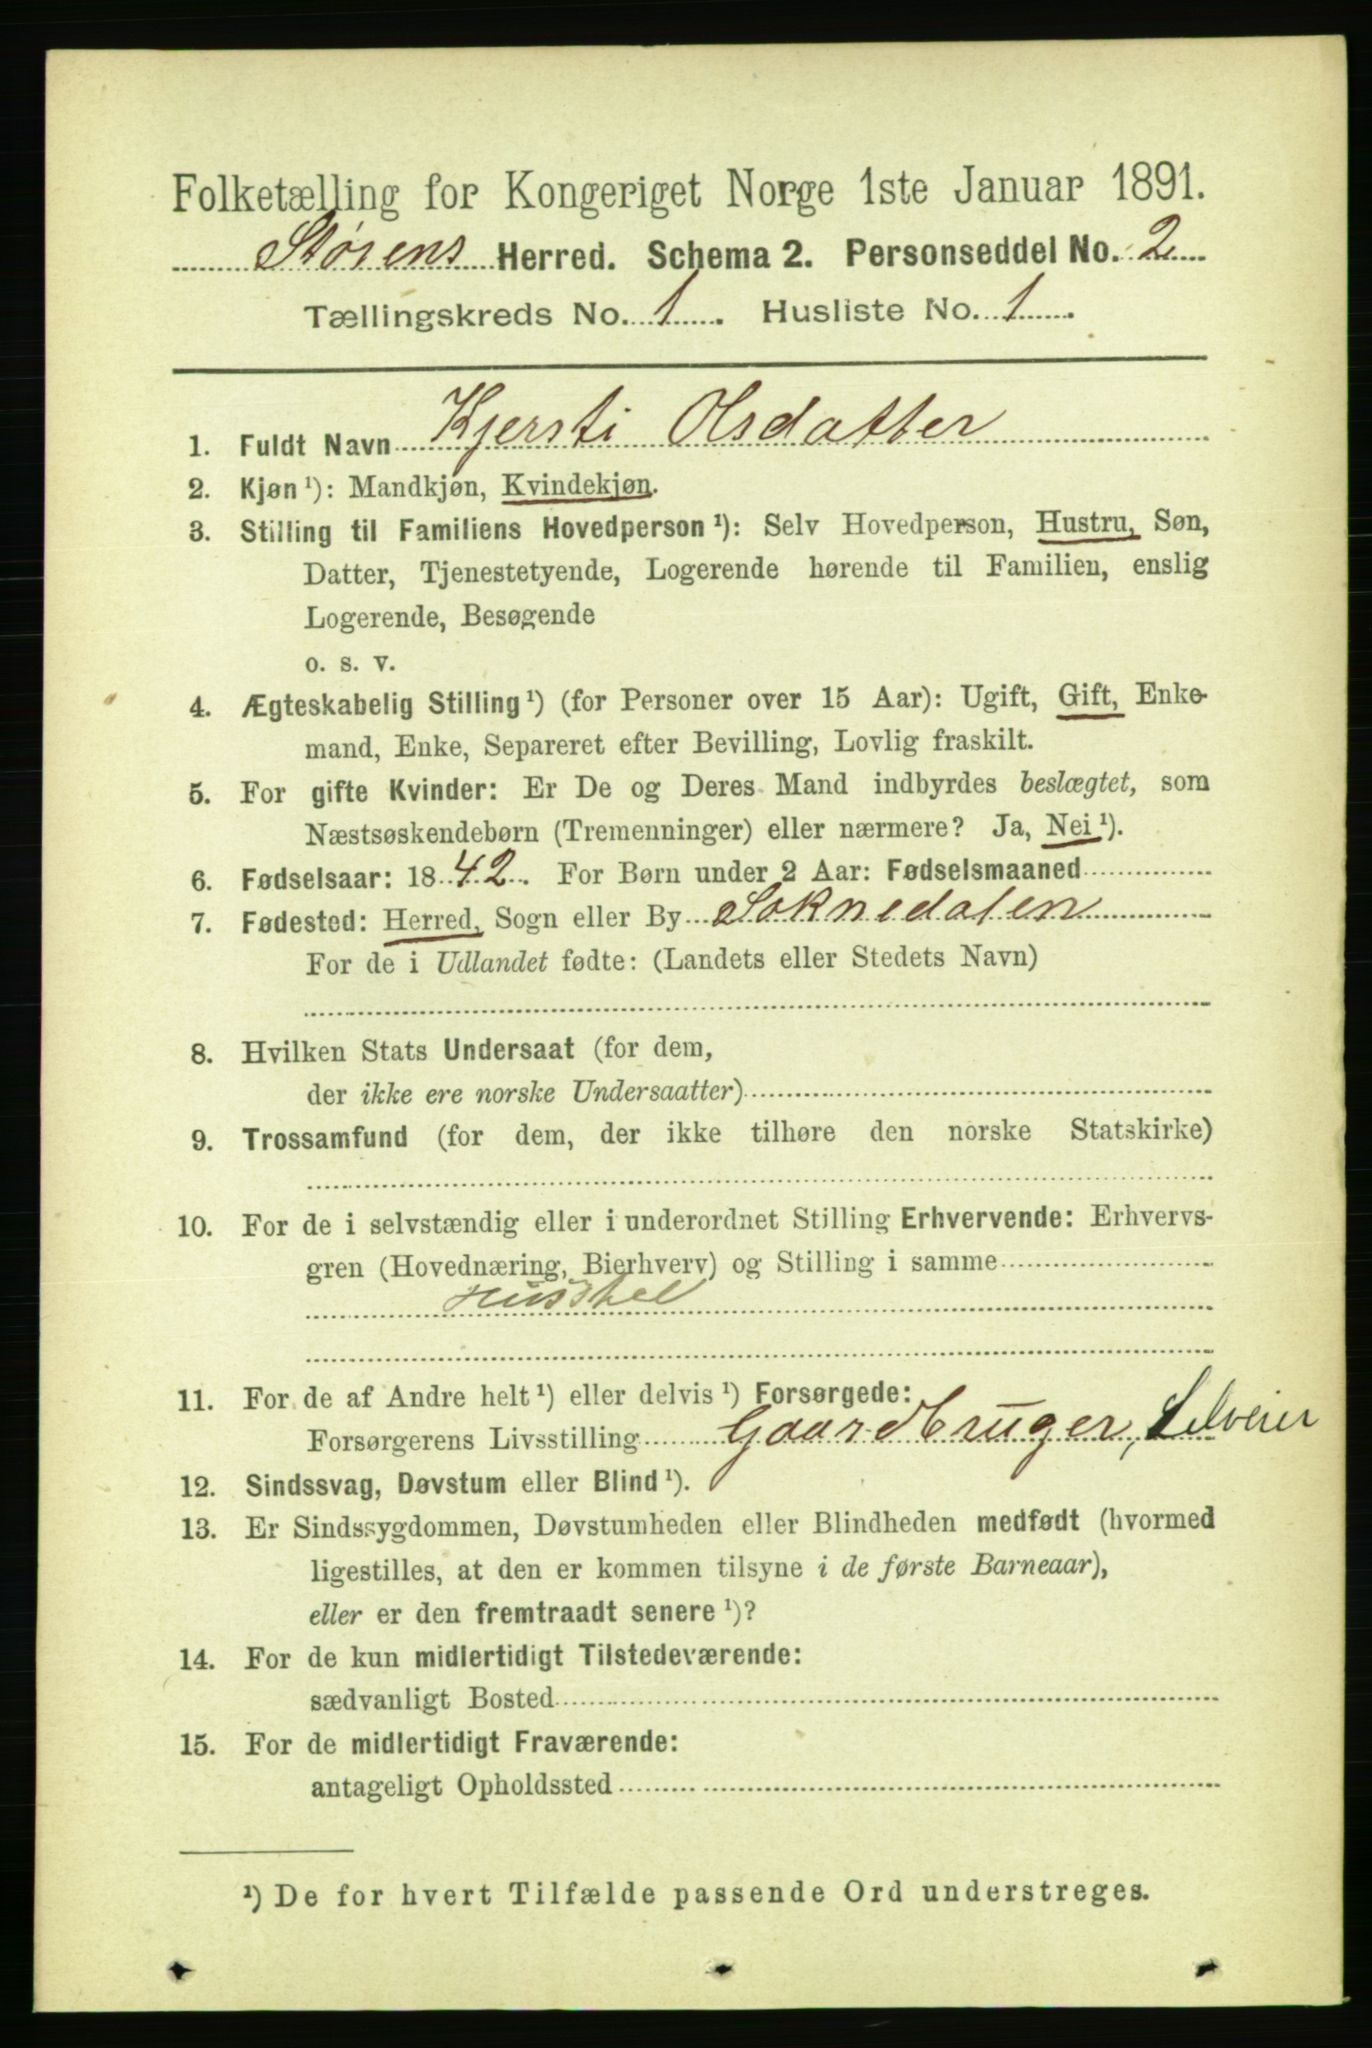 Folketælling for Kongeriget Norge 1ste Januar 1891.
Størens Herred. Schema 2. Personseddel No. 2
Tællingskreds No. 1. Husliste No. 1.
1. Fuldt Navn Kjersti Olsdatter
2. Kjøn ¹): Mandkjøn, Kvindekjøn.
3. Stilling til Familiens Hovedperson ¹): Selv Hovedperson, Hustru, Søn,
Datter, Tjenestetyende, Logerende hørende til Familien, enslig
Logerende, Besøgende
o. s. v.
4. Ægteskabelig Stilling ¹) (for Personer over 15 Aar): Ugift, Gift, Enke-
mand, Enke, Separeret efter Bevilling, Lovlig fraskilt.
5. For gifte Kvinder: Er De og Deres Mand indbyrdes beslægtet, som
Næstsøskendebørn (Tremenninger) eller nærmere? Ja, Nei ¹).
6. Fødselsaar: 1842. For Børn under 2 Aar: Fødselsmaaned
7. Fødested: Herred, Sogn eller By Soknedalen
For de i Udlandet fødte: (Landets eller Stedets Navn)
8. Hvilken Stats Undersaat (for dem,
der ikke ere norske Undersaatter)
9. Trossamfund (for dem, der ikke tilhøre den norske Statskirke)
10. For de i selvstændig eller i underordnet Stilling Erhvervende: Erhvervs-
gren (Hovednæring, Bierhverv) og Stilling i samme
Husstel
11. For de af Andre helt ¹) eller delvis ¹) Forsørgede:
Forsørgerens Livsstilling Gaardbruger, Selveier
12. Sindssvag, Døvstum eller Blind ¹).
13. Er Sindssygdommen, Døvstumheden eller Blindheden medfødt (hvormed
ligestilles, at den er kommen tilsyne i de første Barneaar),
eller er den fremtraadt senere ¹)?
14. For de kun midlertidigt Tilstedeværende:
sædvanligt Bosted
15. For de midlertidigt Fraværende:
antageligt Opholdssted
¹) De for hvert Tilfælde passende Ord understreges.